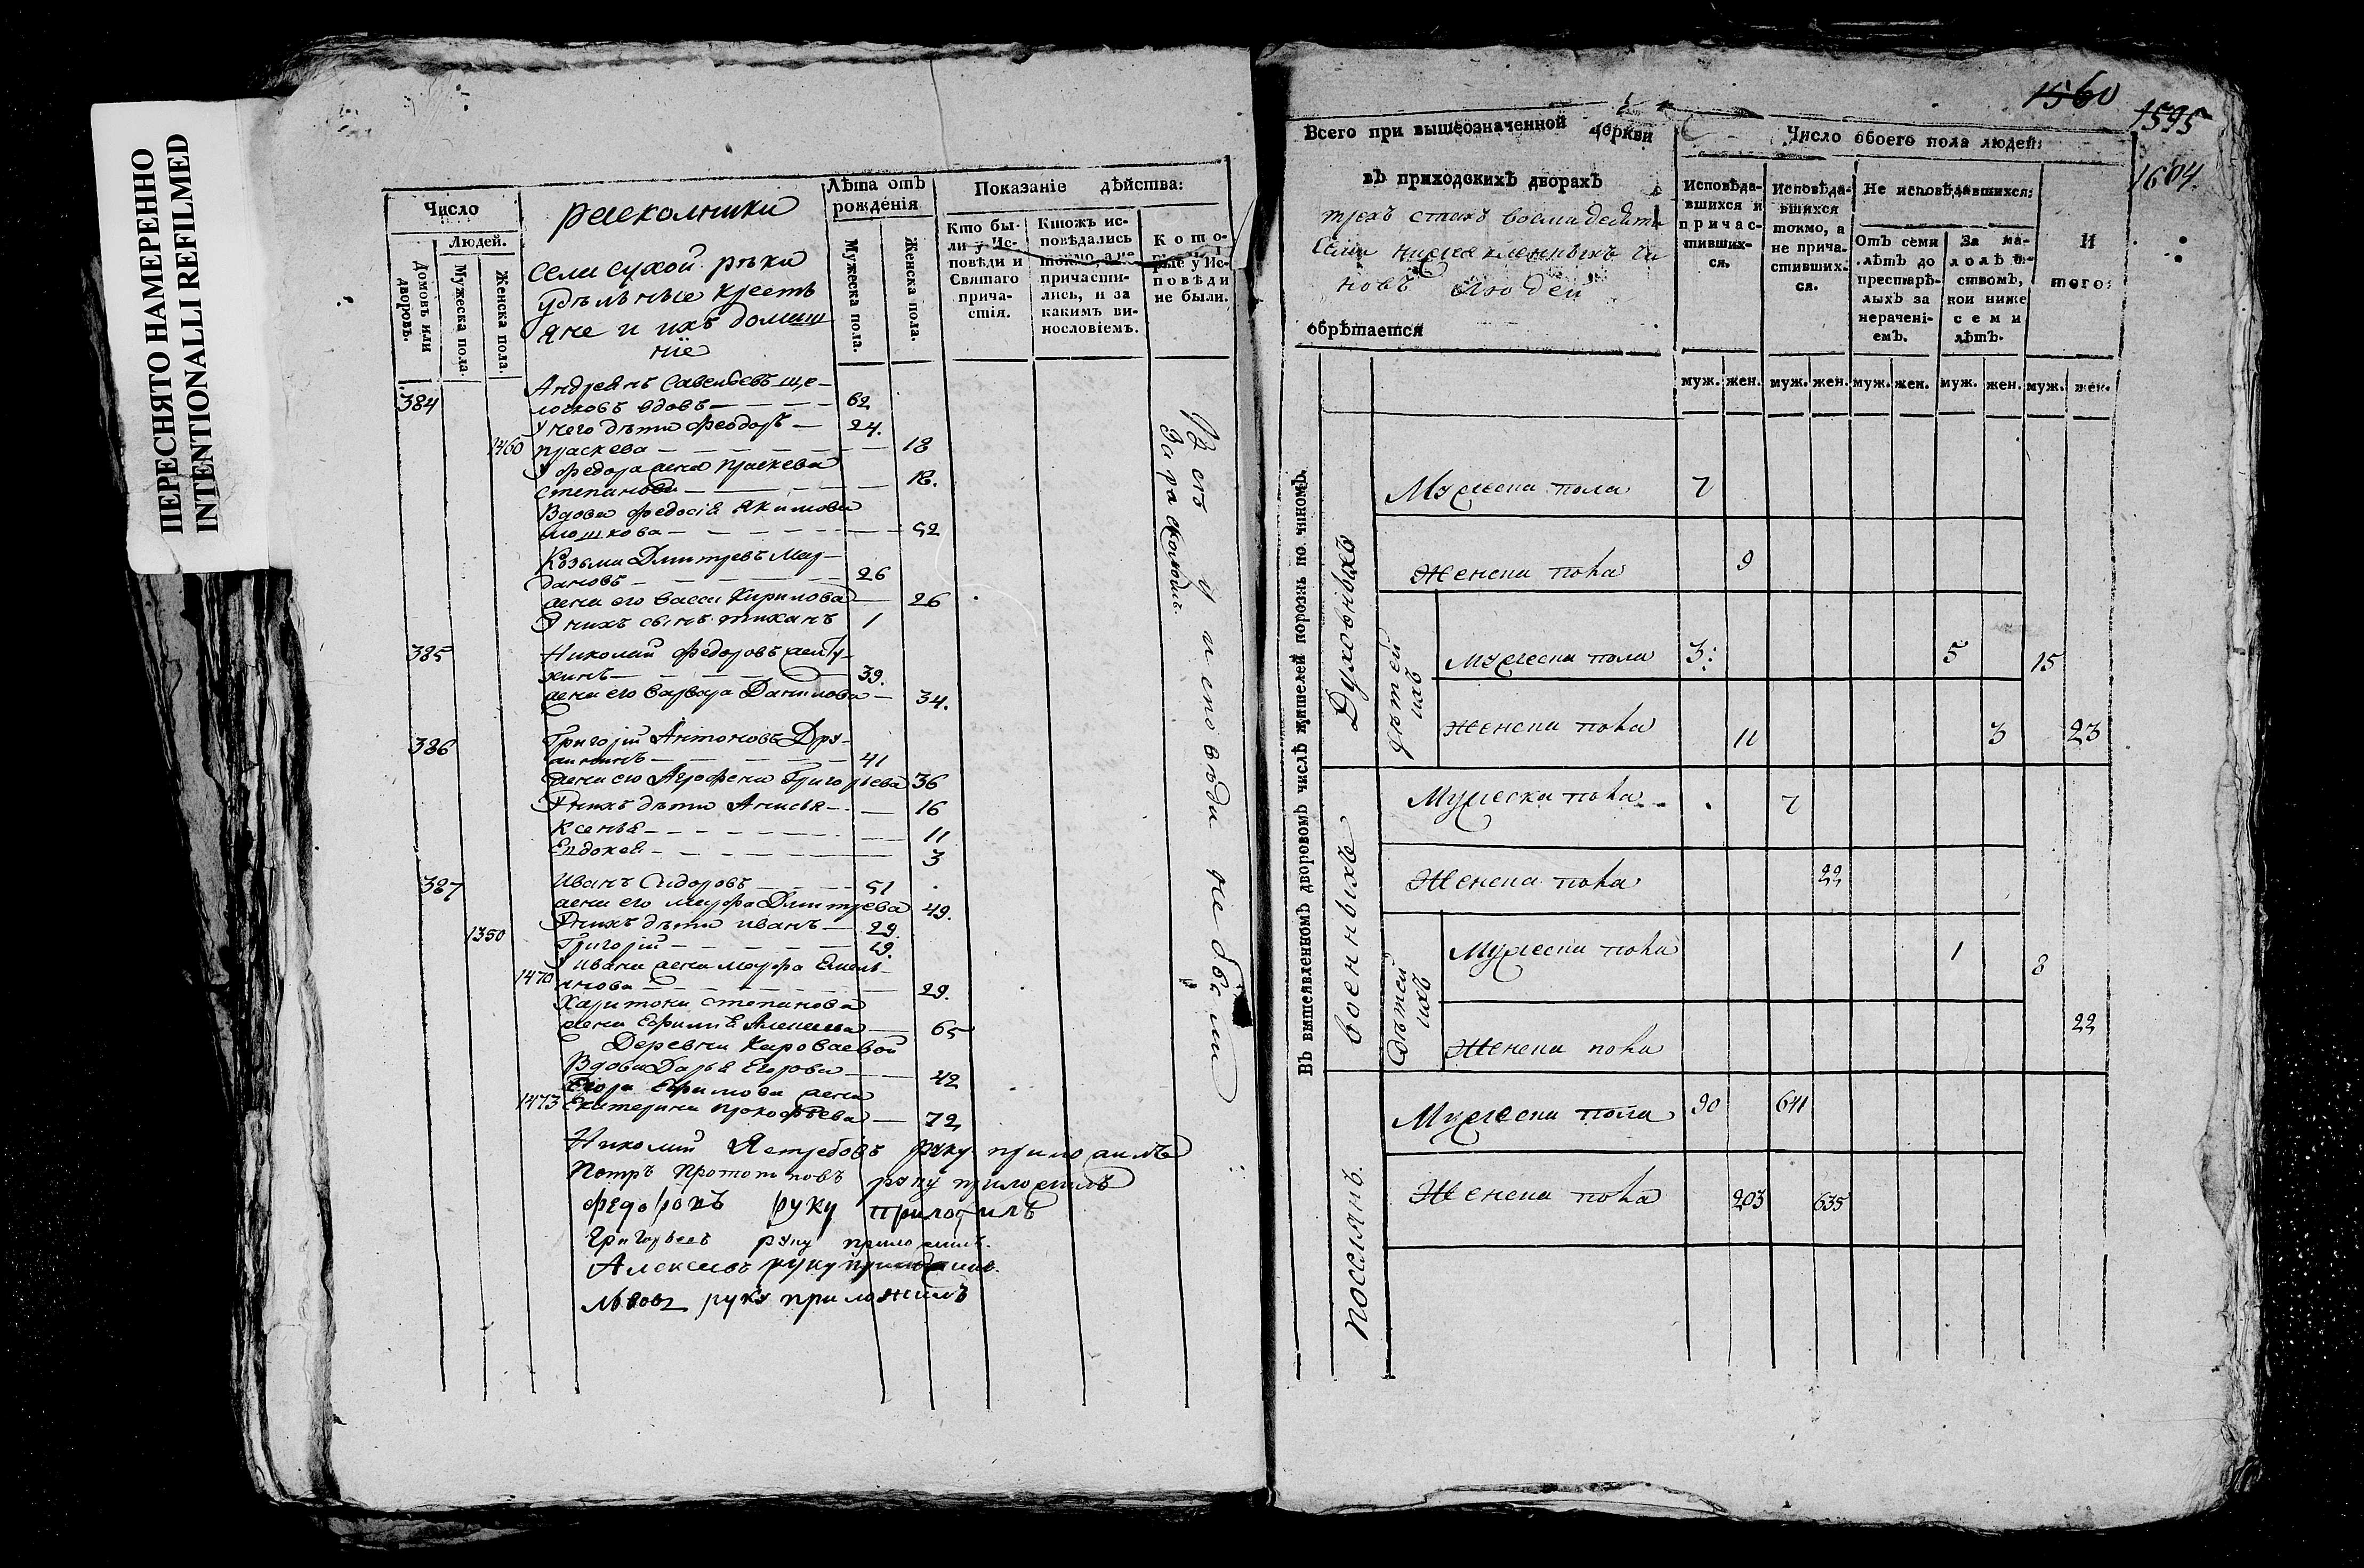 ПЕРЕСНЯТО НАМЕРЕННО
INTENTIONALLI REFILMED
Число
Людей.
Домовъ или дворовъ.
Мужеска пола.
Женска пола.
раскольники
села сухой рѣки
удѣльные кресть
яне и ихъ домаш
ніе
Лѣта отъ рожденія
Мужеска пола.
Женска пола.
Показаніе дѣйства:
Кто бы-
ли у Ис-
повѣди и
Святаго
прича-
стія.
Ктожъ ис-
повѣдались
токмо, а не
причасти-
лись, и за
какимъ ви-
нословіемъ.
Кото-
рые у Ис-
повѣди
не были.
384 Андреянъ Савельевъ ще-
вдовъ 62
У него дѣти Феодоръ 24.
1460 праскева 18
У федора жена праскева
степанова 18.
Вдова федосія Якимова
52
Козьма Дмитревъ Май-
дановъ 26
жена его васса Кирилова 26
У нихъ сынъ тиханъ 1
385 Николай федоровъ
39.
жена его варвара Данилова 34.
386 Григорій Антоновъ Дру-
жининъ 41
жена его Агрофена Григорьева 36
У нихъ дѣти Анисья 16
Ксенья 11
Евдокея 3
387 Иванъ Сидоровъ 51
жена его марфа Дмитрева 49.
У нихъ дѣти иванъ 29.
1350 Григорій 19.
У ивана жена марфа Емель-
1470 янова 29.
Харитона степанова
жена Ефимія Алексева 65
Деревни Караваевой
Вдова Дарья Егорова 42
Егора Ефимова жена
1473 Екатерина прокофьева 72
всѣ у исповѣди не были
За расколомъ.
Николай Ястребовъ руку приложилъ
Петръ Протопоповъ руку приложилъ
Федоровъ руку приложилъ
Григорьевъ руку приложилъ.
Алексѣевъ руку приложилъ.
Львовъ руку приложилъ
1560
1595
1604.
Всего при вышеозначенной церкви
въ приходскихъ дворахъ
трехъ стахъ восмидесяти
семи нижеявленныхъ чи
новъ людей
обрѣтается
Число обоего пола людей:
Исповѣда-
вшихся и
причас-
тивших-
ся.
Исповѣда-
вшихся
токмо, а
не прича-
стивших-
ся.
Не исповѣдавшихся:
Отъ семи
лѣтъ до
престарѣ-
лыхъ за
нерачені-
емъ.
За ма-
лолѣт-
ствомъ,
кои ниже
семи
лѣтъ.
И
того:
муж. жен. муж. жен. муж. жен. муж. жен. муж. жен.
Въ вышеявленномъ дворовомъ числѣ жителей порознь по чиномъ.
Духовныхъ
Мужеска пола 7
Женска пола 9
дѣтей ихъ
Мужеска пола 3: 5 15
Женска пола 11 3 23
военныхъ
Мужеска пола 7
Женска пола 22
дѣтей ихъ
Мужеска пола 1 8
Женска пола 22
поселянъ.
Мужеска пола 90 641
Женска пола 203 635